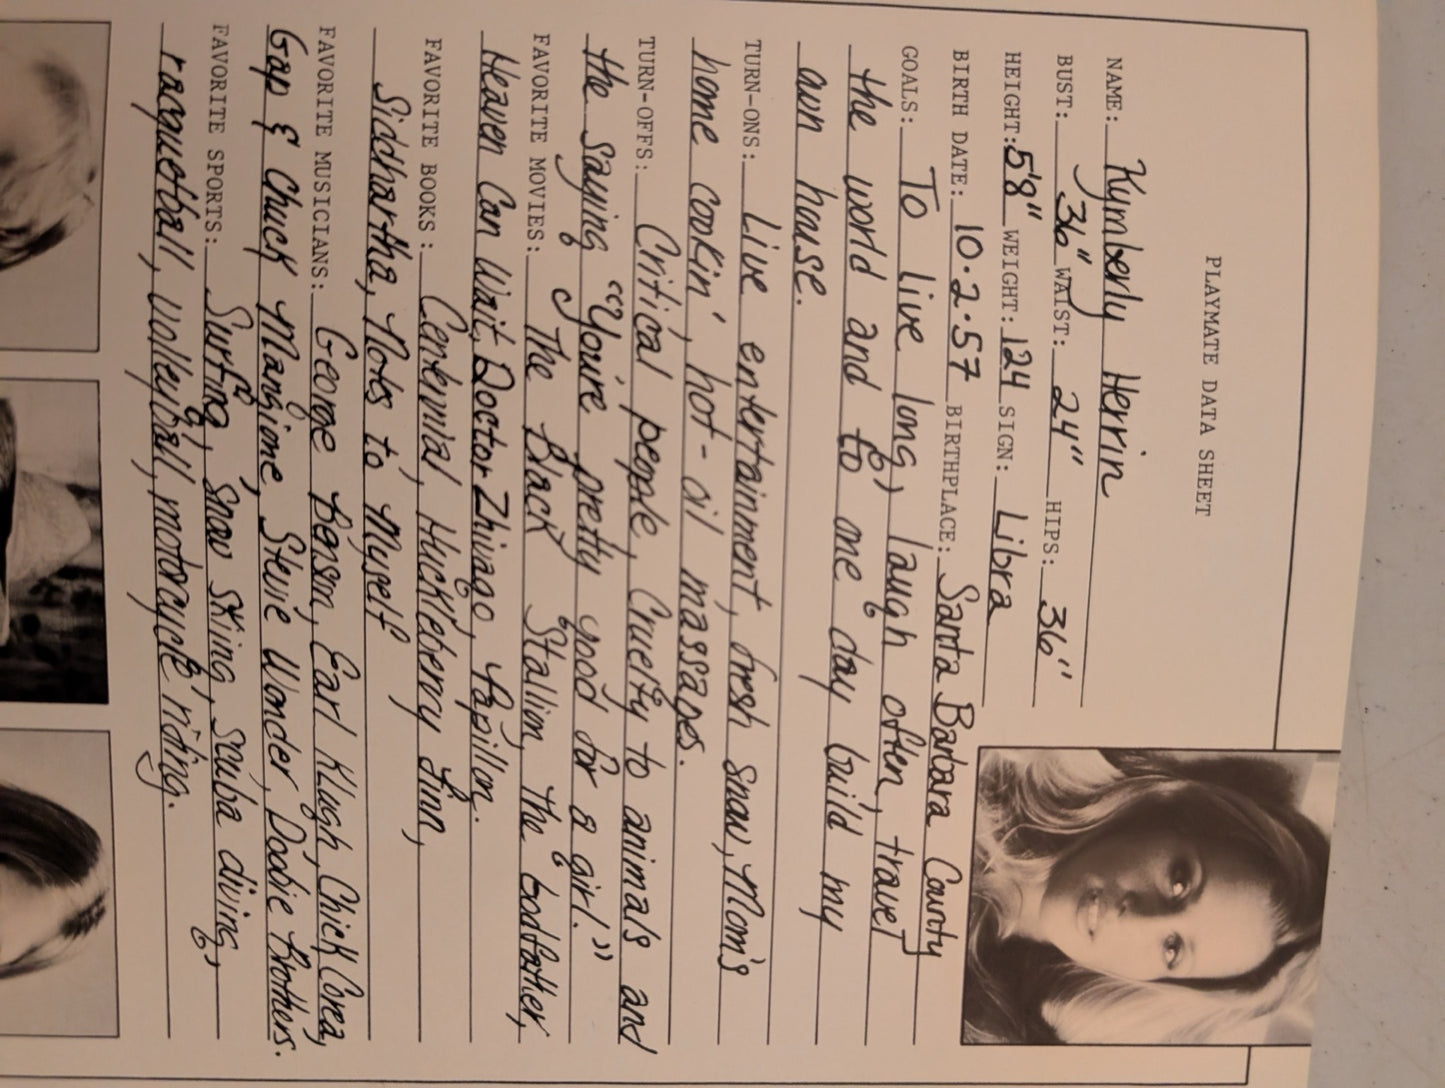 PLAYMATE DATA SHEET
NAME: Kymberly Herrin
BUST: 36" WAIST: 24" HIPS: 36"
HEIGHT: 5'8" WEIGHT: 124 SIGN: Libra
BIRTH DATE: 10.2.57 BIRTHPLACE: Santa Barbara County
GOALS: To live long, laugh often, travel
the world and to one day build my
own house.
TURN-ONS: Live entertainment, fresh snow, Mom's
home cookin', hot-oil massages.
TURN-OFFS: Critical people, Cruelty to animals and
the saying "You're pretty good for a girl."
FAVORITE MOVIES: The Black Stallion, The Godfather,
Heaven Can Wait, Doctor Zhivago, Papillon.
FAVORITE BOOKS: Centennial, Huckleberry Finn,
Siddhartha, Notes to Myself
FAVORITE MUSICIANS: George Benson, Earl Klugh, Chick Corea,
Gap & Chuck Mangione, Stevie Wonder, Doobie Brothers.
FAVORITE SPORTS: Surfing, Snow skiing, scuba diving,
racquetball, volleyball, motorcycle riding.